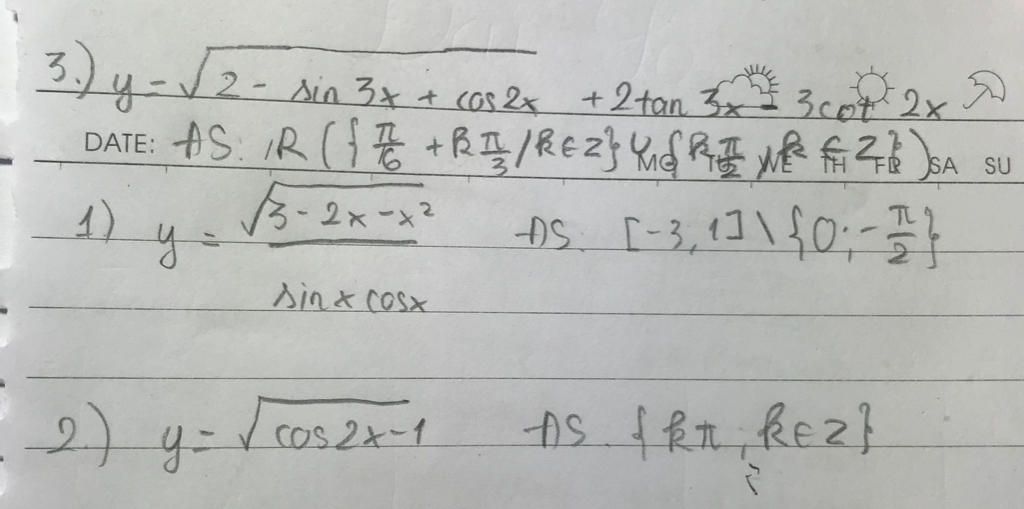 3.) y = √2 - sin 3x + cos 2x + 2 tan 3x - 3 cot 2x
DATE: AS: R ( { π/6 + k π/3 / k ∈ Z } ∪ { k π/2 , k ∈ Z } ) MO TU WE TH FR SA SU
1) y = √3 - 2x - x² / sin x cos x AS. [-3, 1] \ { 0; - π/2 }
2.) y = √cos 2x - 1 AS. { kπ , k ∈ Z }